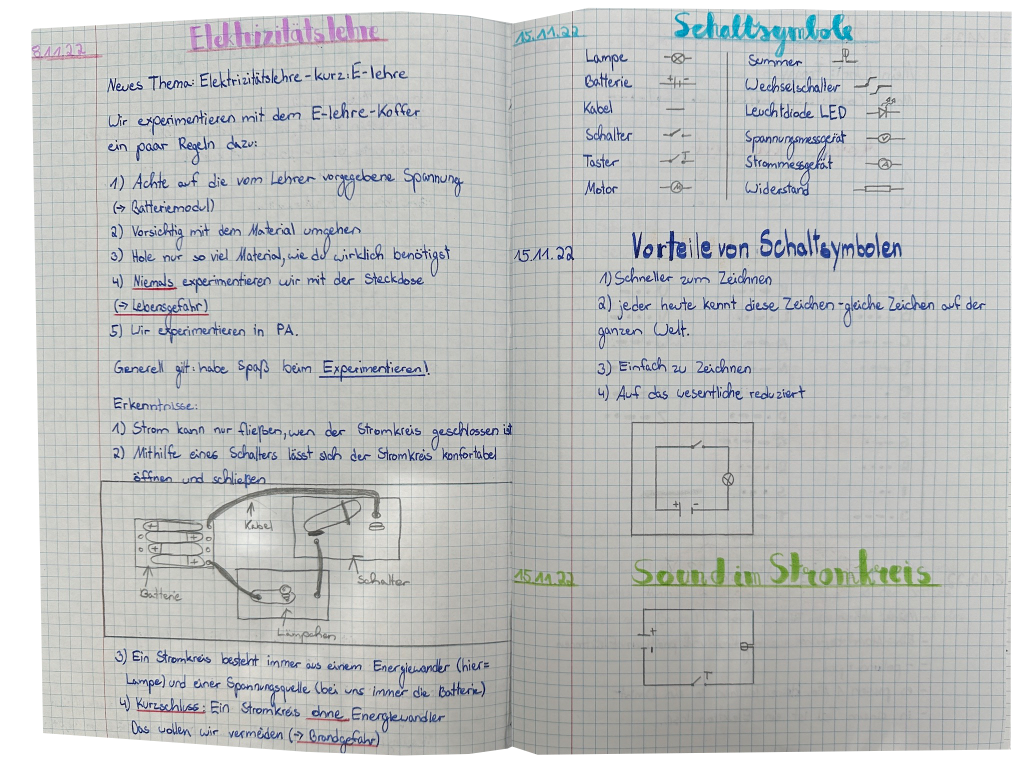 8.11.22
Elektrizitätslehre
Neues Thema: Elektrizitätslehre - kurz: E-lehre
Wir experimentieren mit dem E-lehre-Koffer
ein paar Regeln dazu:
1) Achte auf die vom Lehrer vorgegebene Spannung
(→ Batteriemodul)
2) Vorsichtig mit dem Material umgehen
3) Hole nur so viel Material, wie du wirklich benötigst
4) Niemals experimentieren wir mit der Steckdose
(→ Lebensgefahr)
5) Wir experimentieren in PA.
Generell gilt: habe Spaß beim Experimentieren!
Erkenntnisse:
1) Strom kann nur fließen, wen der Stromkreis geschlossen ist
2) Mithilfe eines Schalters lässt sich der Stromkreis konfortabel
öffnen und schließen
Kabel
Schalter
Batterie
Lämpchen
3) Ein Stromkreis besteht immer aus einem Energiewander (hier=
Lampe) und einer Spannungsquelle (bei uns immer die Batterie)
4) Kurzschluss: Ein Stromkreis ohne Energiewandler
Das wollen wir vermeiden (→ Brandgefahr)
15.11.22
Schaltsymbole
Lampe
Batterie
Kabel
Schalter
Taster
Motor
Summer
Wechselschalter
Leuchtdiode LED
Spannungsmessgerät
Strommessgerät
Widerstand
15.11.22
Vorteile von Schaltsymbolen
1) Schneller zum Zeichnen
2) jeder heute kennt diese Zeichen - gleiche Zeichen auf der
ganzen Welt.
3) Einfach zu Zeichnen
4) Auf das wesentliche reduziert
15.11.22
Sound im Stromkreis